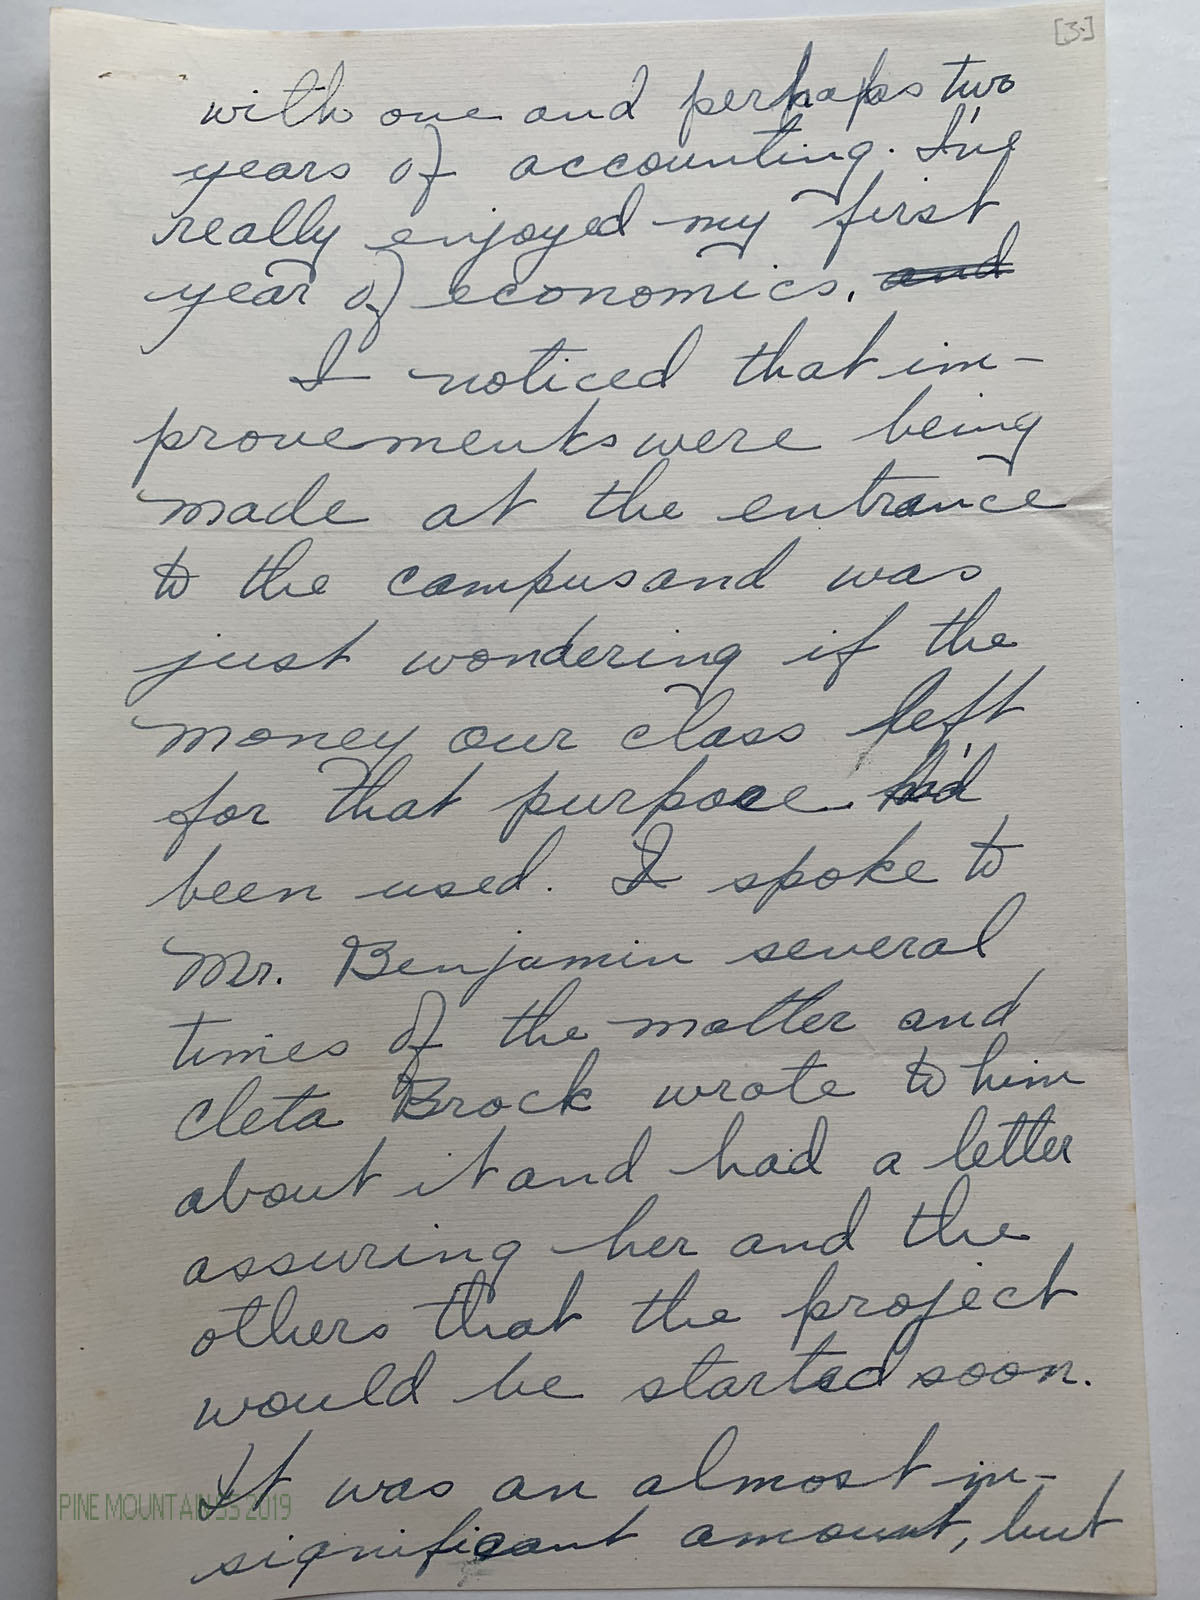 [3.]
with one and perhaps two
years of accounting. I've
really enjoyed my first
year of economics. and
I noticed that im-
provements were being
made at the entrance
to the campus and was
just wondering if the
money our class left
for that purpose had
been used. I spoke to
Mr. Benjamin several
times of the matter and
Cleta Brock wrote to him
about it and had a letter
assuring her and the
others that the project
would be started soon.
It was an almost in-
significant amount, but
PINE MOUNTAIN SS 2019